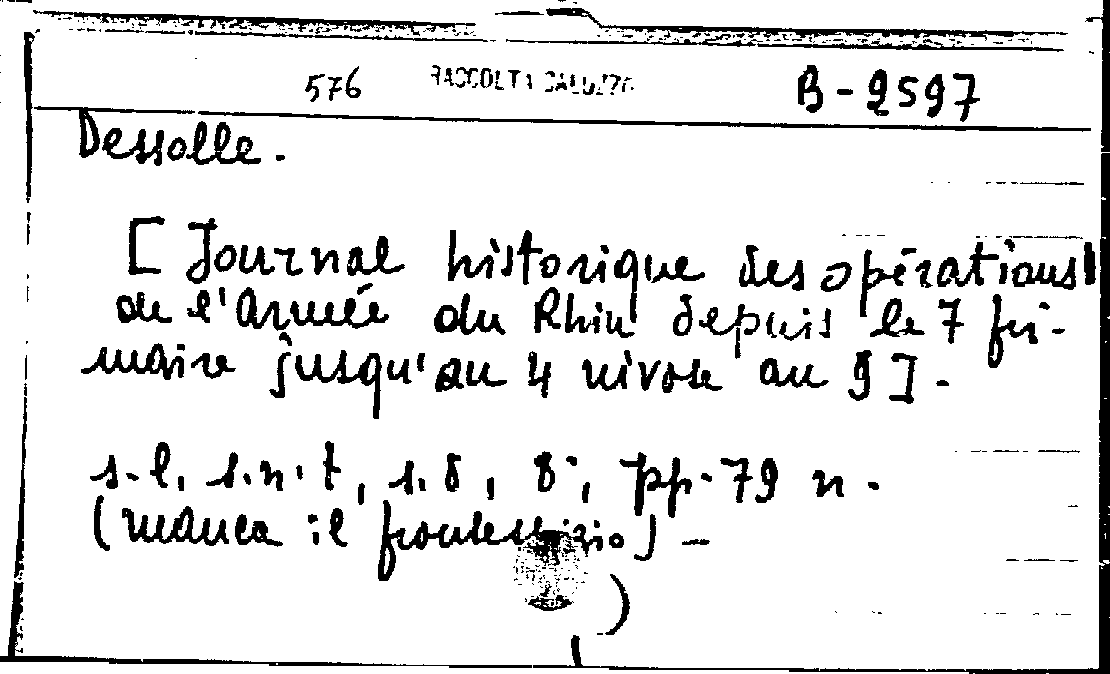 576 RACCOLTA SALUZZO B-2597
Dessolle.
[ Journal historique des opérations
de l'Armée du Rhin depuis le 7 fri-
maire jusqu'au 4 nivose an 9 ].
s.l., s.n.t., s.d., 8°, pp. 79 n.
(manca il frontespizio) -